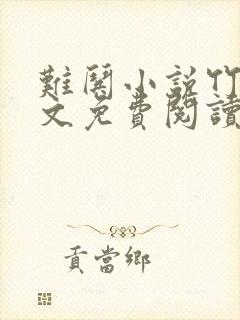 難關小說竹
文免費閱讀
貢當鄉